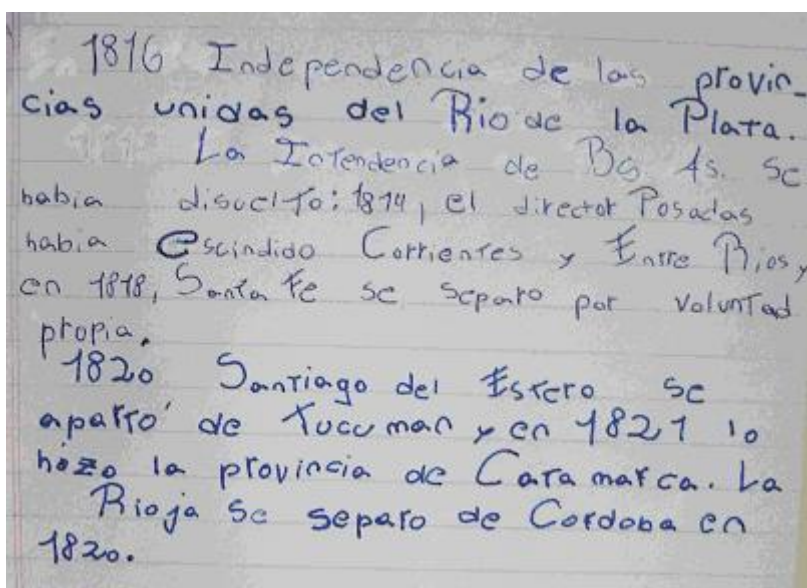 1816 Independencia de las provin_
cias unidas del Rio de la Plata.
La Intendencia de Bs As. se
habia disuelto: 1814, el director Posadas
habia escindido Corrientes y Entre Rios,
en 1818, Santa Fe se separo por voluntad
propia.
1820 Santiago del Estero se
apartó de Tucuman y en 1821 lo
hizo la provincia de Catamarca. La
Rioja se separo de Cordoba en
1820.